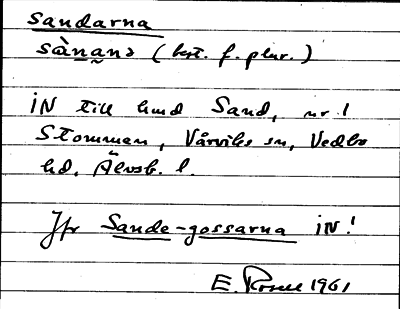 Sandarna
sànană (best. f. plur.)
IN till hmd Sand, nr 1
Stommen, Vårviks sn, Vedbo
hd, Älvsb. l.
Jfr Sande-gossarna IN!
E. Rosell 1961